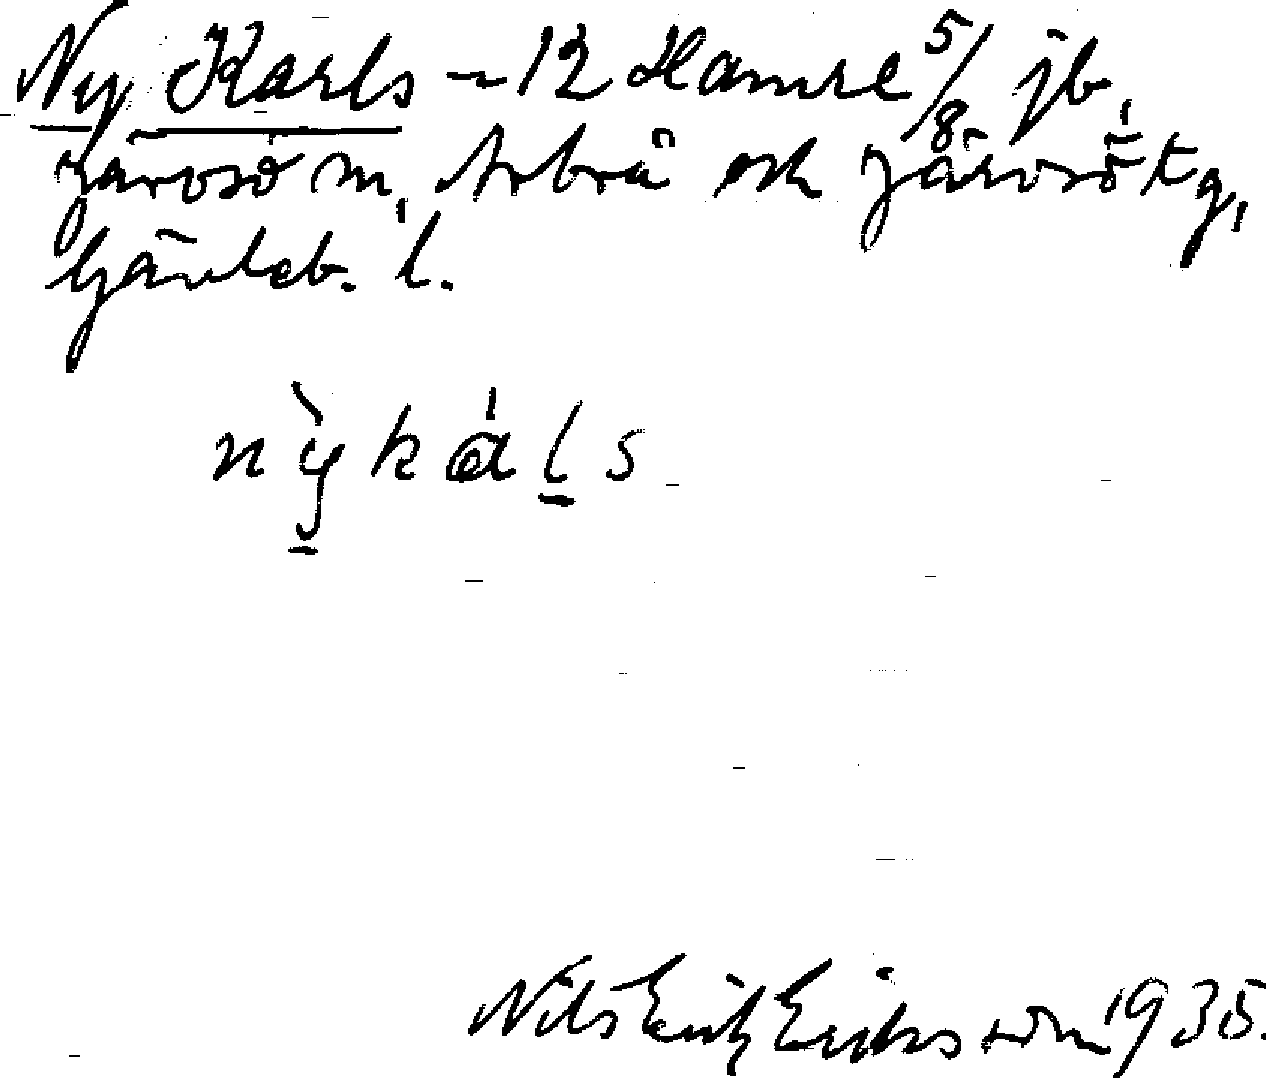 Ny Karls - 12 Hamre 5/8 jb,
Järvsö sn, Arbrå och Järvsö tg,
Gävleb. l.
nỳkáls
Nils Erik Eriksson 1935.